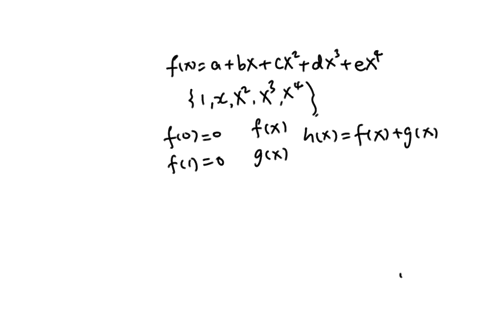 f(x)=a+bx+cx²+dx³+ex⁴
{1,x,x²,x³,x⁴}
f(0)=0 f(x) h(x)=f(x)+g(x)
f(1)=0 g(x)